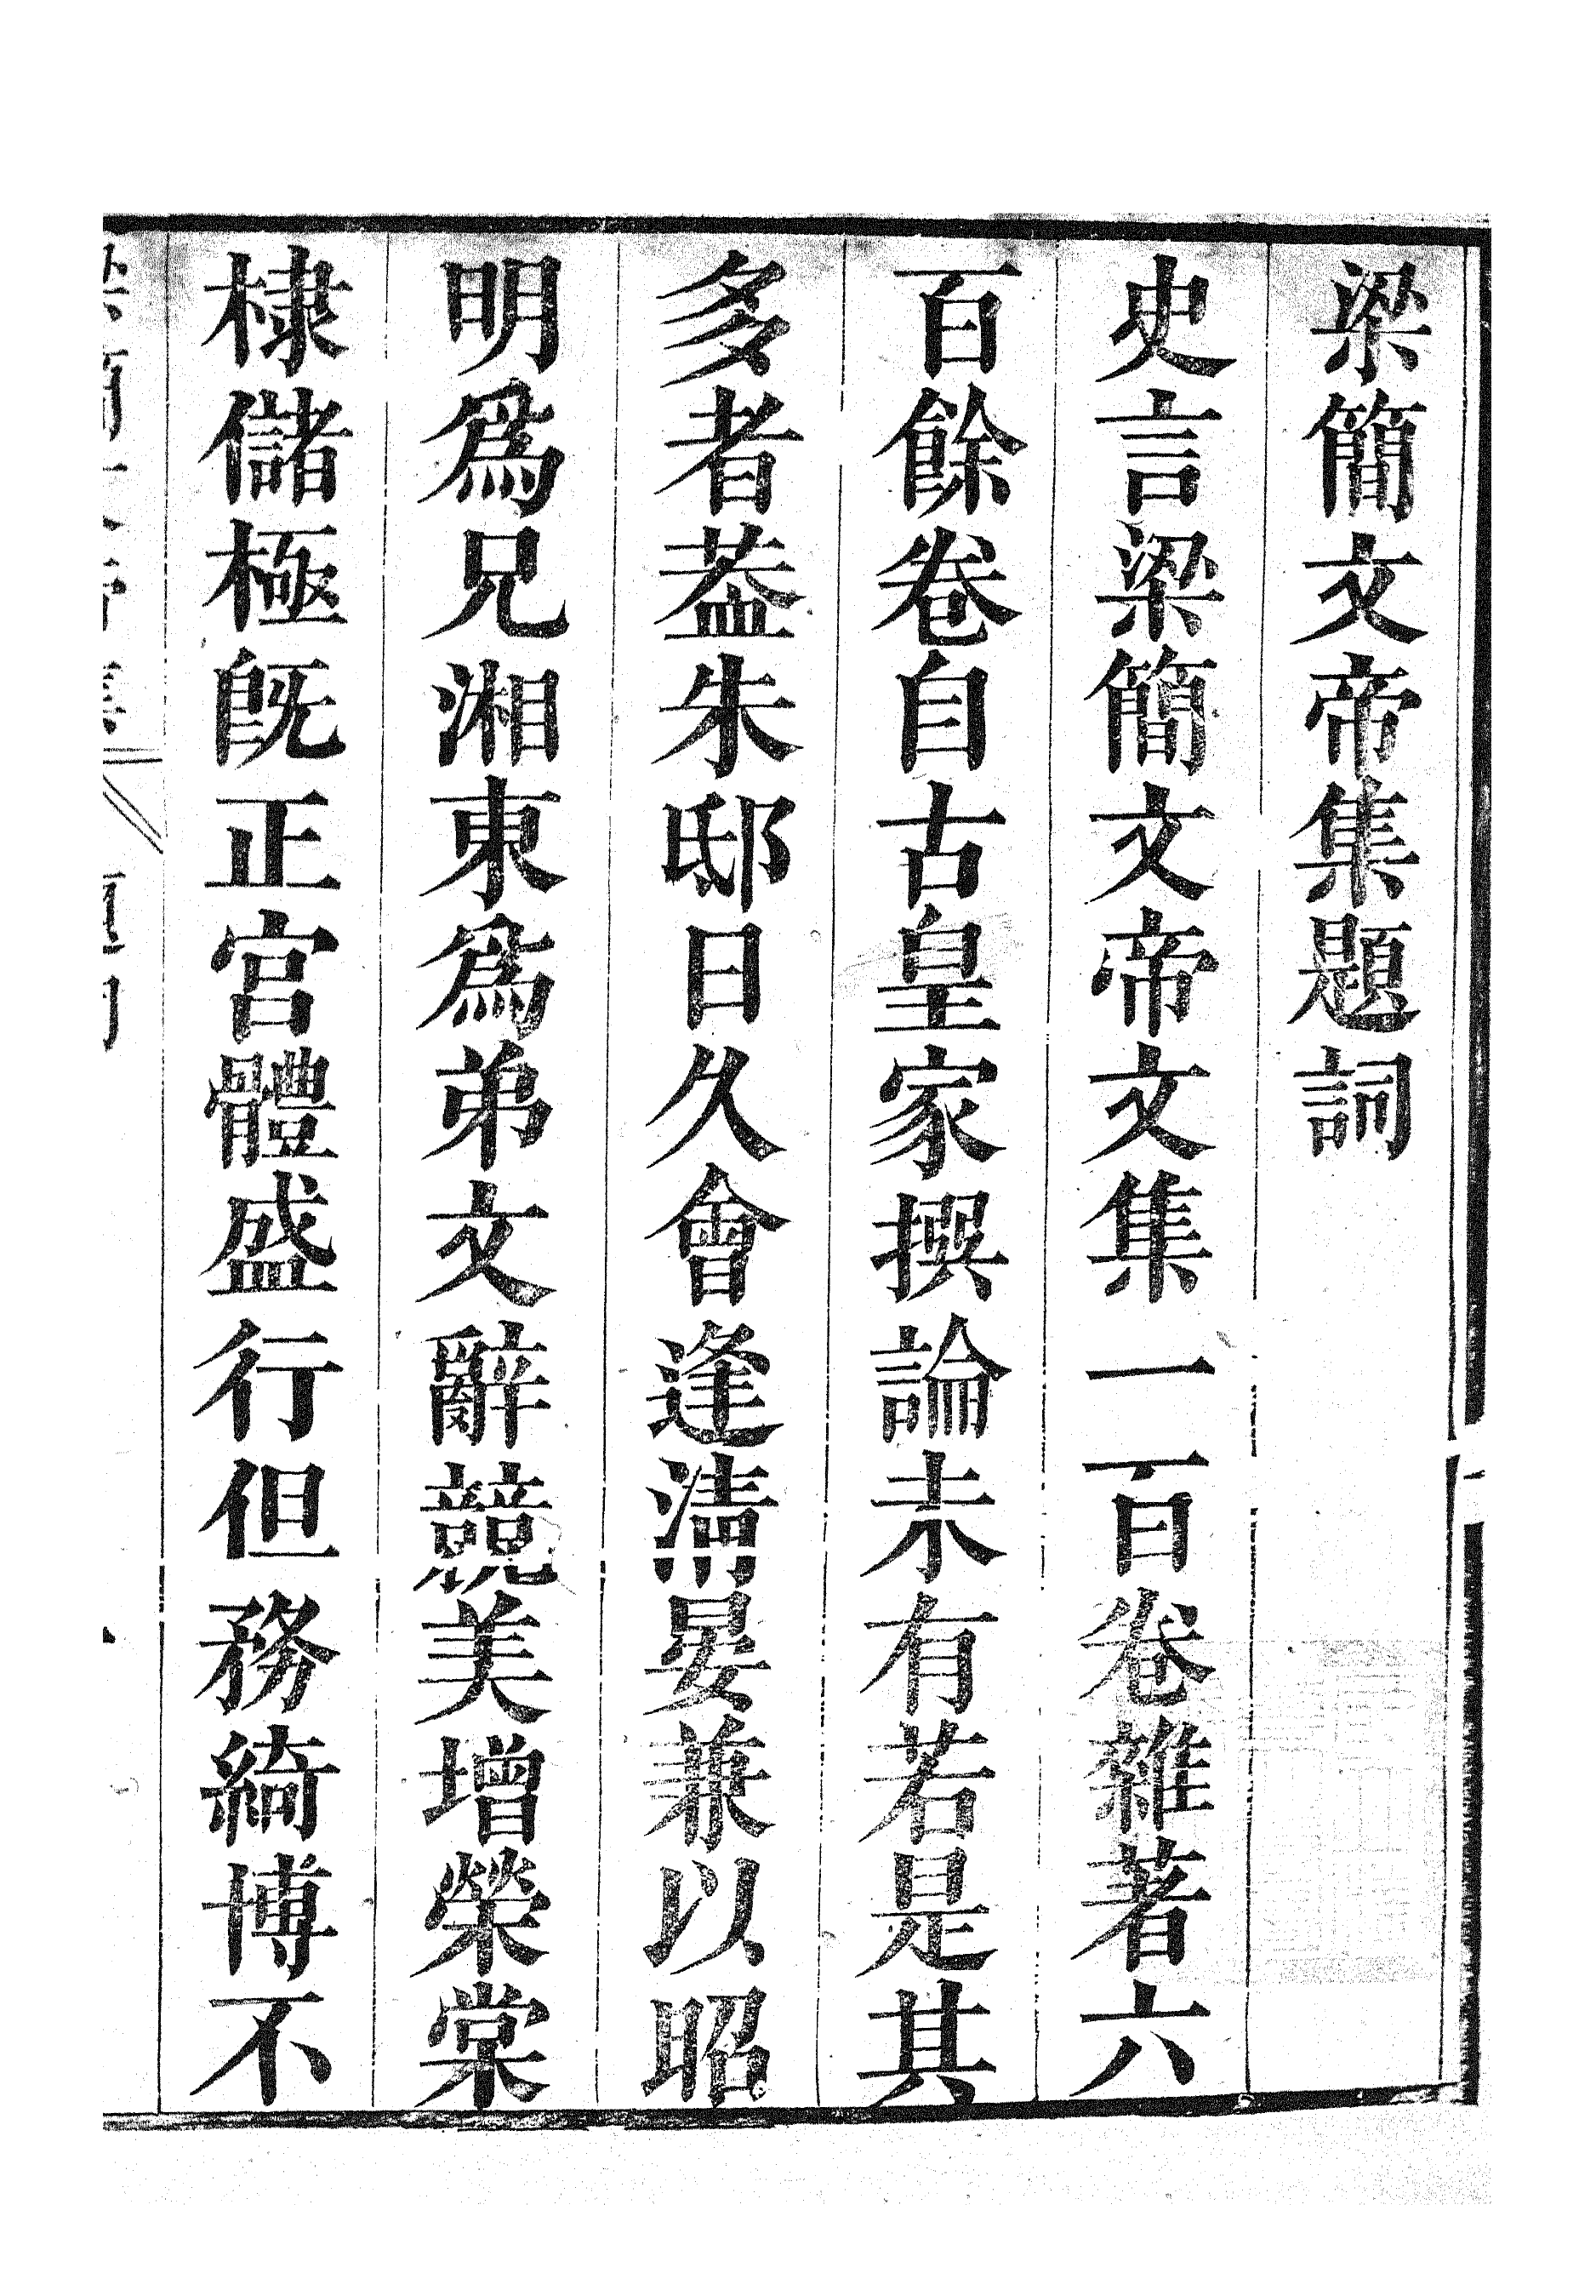 梁簡文帝集題詞
史言梁簡文帝文集一百卷雜著六
百餘卷自古皇家撰論未有若是其
多者葢朱邸日久會逢清晏兼以昭
明爲兄湘東爲弟文辭競美增榮棠
棣儲極旣正宫體盛行但務綺博不